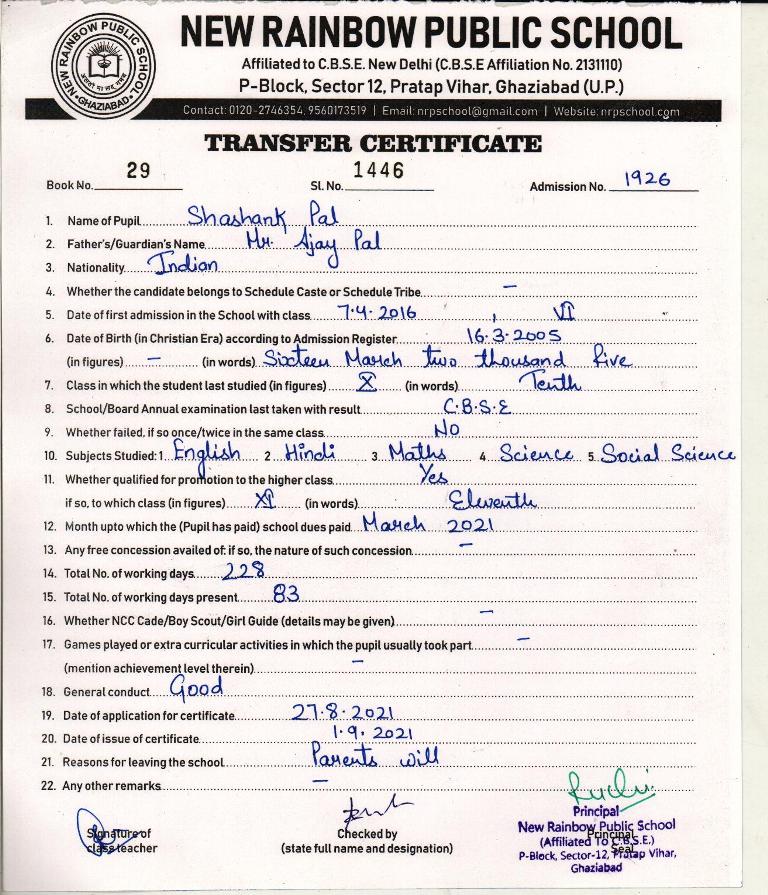 NEW RAINBOW PUBLIC SCHOOL
GHAZIABAD
NEW RAINBOW PUBLIC SCHOOL
Affiliated to C.B.S.E. New Delhi (C.B.S.E Affiliation No. 2131110)
P-Block, Sector 12, Pratap Vihar, Ghaziabad (U.P.)
Contact: 0120-2746354, 9560173519 | Email: nrpschool@gmail.com | Website: nrpschool.com
TRANSFER CERTIFICATE
Book No. 29 Sl. No. 1446 Admission No. 1926
1. Name of Pupil Shashank Pal
2. Father's/Guardian's Name Mr. Ajay Pal
3. Nationality Indian
4. Whether the candidate belongs to Schedule Caste or Schedule Tribe –
5. Date of first admission in the School with class 7.4.2016 , VI
6. Date of Birth (in Christian Era) according to Admission Register 16.3.2005
(in figures) – (in words) Sixteen March two thousand five
7. Class in which the student last studied (in figures) X (in words) Tenth
8. School/Board Annual examination last taken with result C.B.S.E
9. Whether failed, if so once/twice in the same class NO
10. Subjects Studied: 1. English 2. Hindi 3. Maths 4. Science 5. Social Science
11. Whether qualified for promotion to the higher class Yes
if so, to which class (in figures) XI (in words) Eleventh
12. Month upto which the (Pupil has paid) school dues paid March 2021
13. Any free concession availed of: if so, the nature of such concession –
14. Total No. of working days 228
15. Total No. of working days present 83
16. Whether NCC Cade/Boy Scout/Girl Guide (details may be given) –
17. Games played or extra curricular activities in which the pupil usually took part –
(mention achievement level therein) –
18. General conduct Good
19. Date of application for certificate 27.8.2021
20. Date of issue of certificate 1.9.2021
21. Reasons for leaving the school Parents will
22. Any other remarks –
Signature of
class teacher
Checked by
(state full name and designation)
Ruchi
Principal
New Rainbow Public School
Principal
(Affiliated To C.B.S.E.)
Seal
P-Block, Sector-12, Pratap Vihar,
Ghaziabad